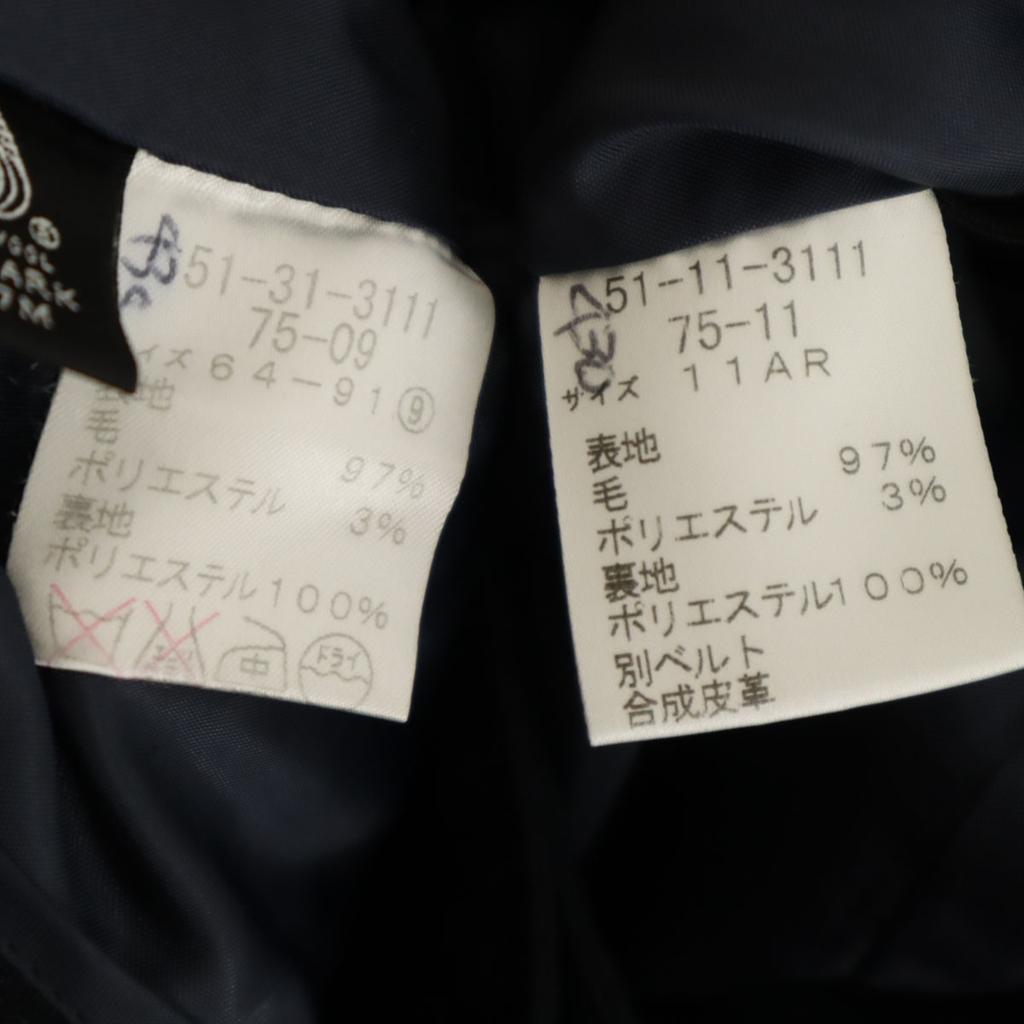 51-31-3111
75-09
イズ 64-91⑨
表地
毛 97%
ポリエステル 3%
裏地
ポリエステル100%
中
ドライ
51-11-3111
75-11
サイズ 11AR
表地
毛 97%
ポリエステル 3%
裏地
ポリエステル100%
別ベルト
合成皮革